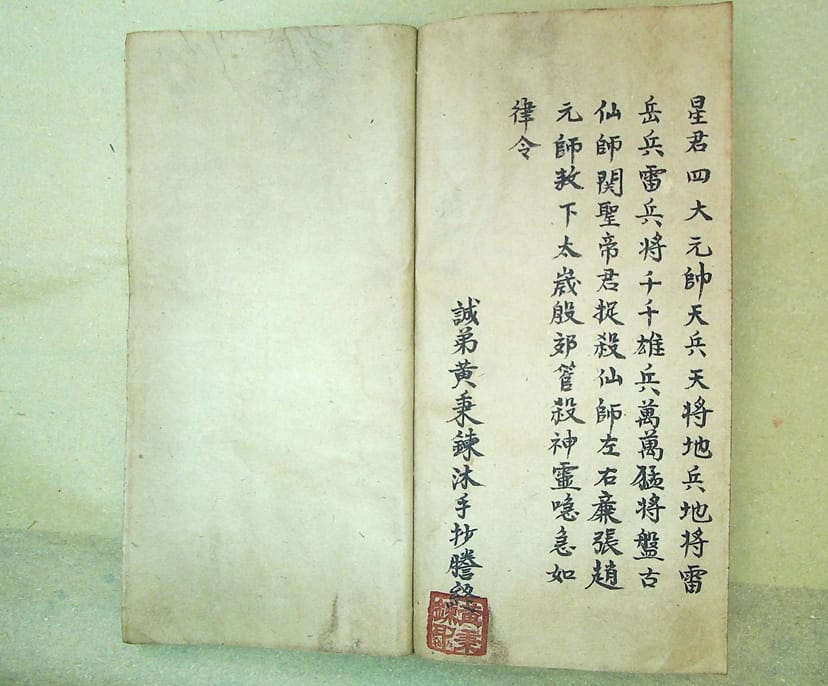 星君四大元帥天兵天将地兵地将雷
岳兵雷兵将千千雄兵萬萬猛将盤古
仙師関聖帝君捉殺仙師左右廉張趙
元師敕下太歲殷郊管殺神靈喼急如
律令
誠弟黄秉鍊沐手抄謄
黄秉
鍊印